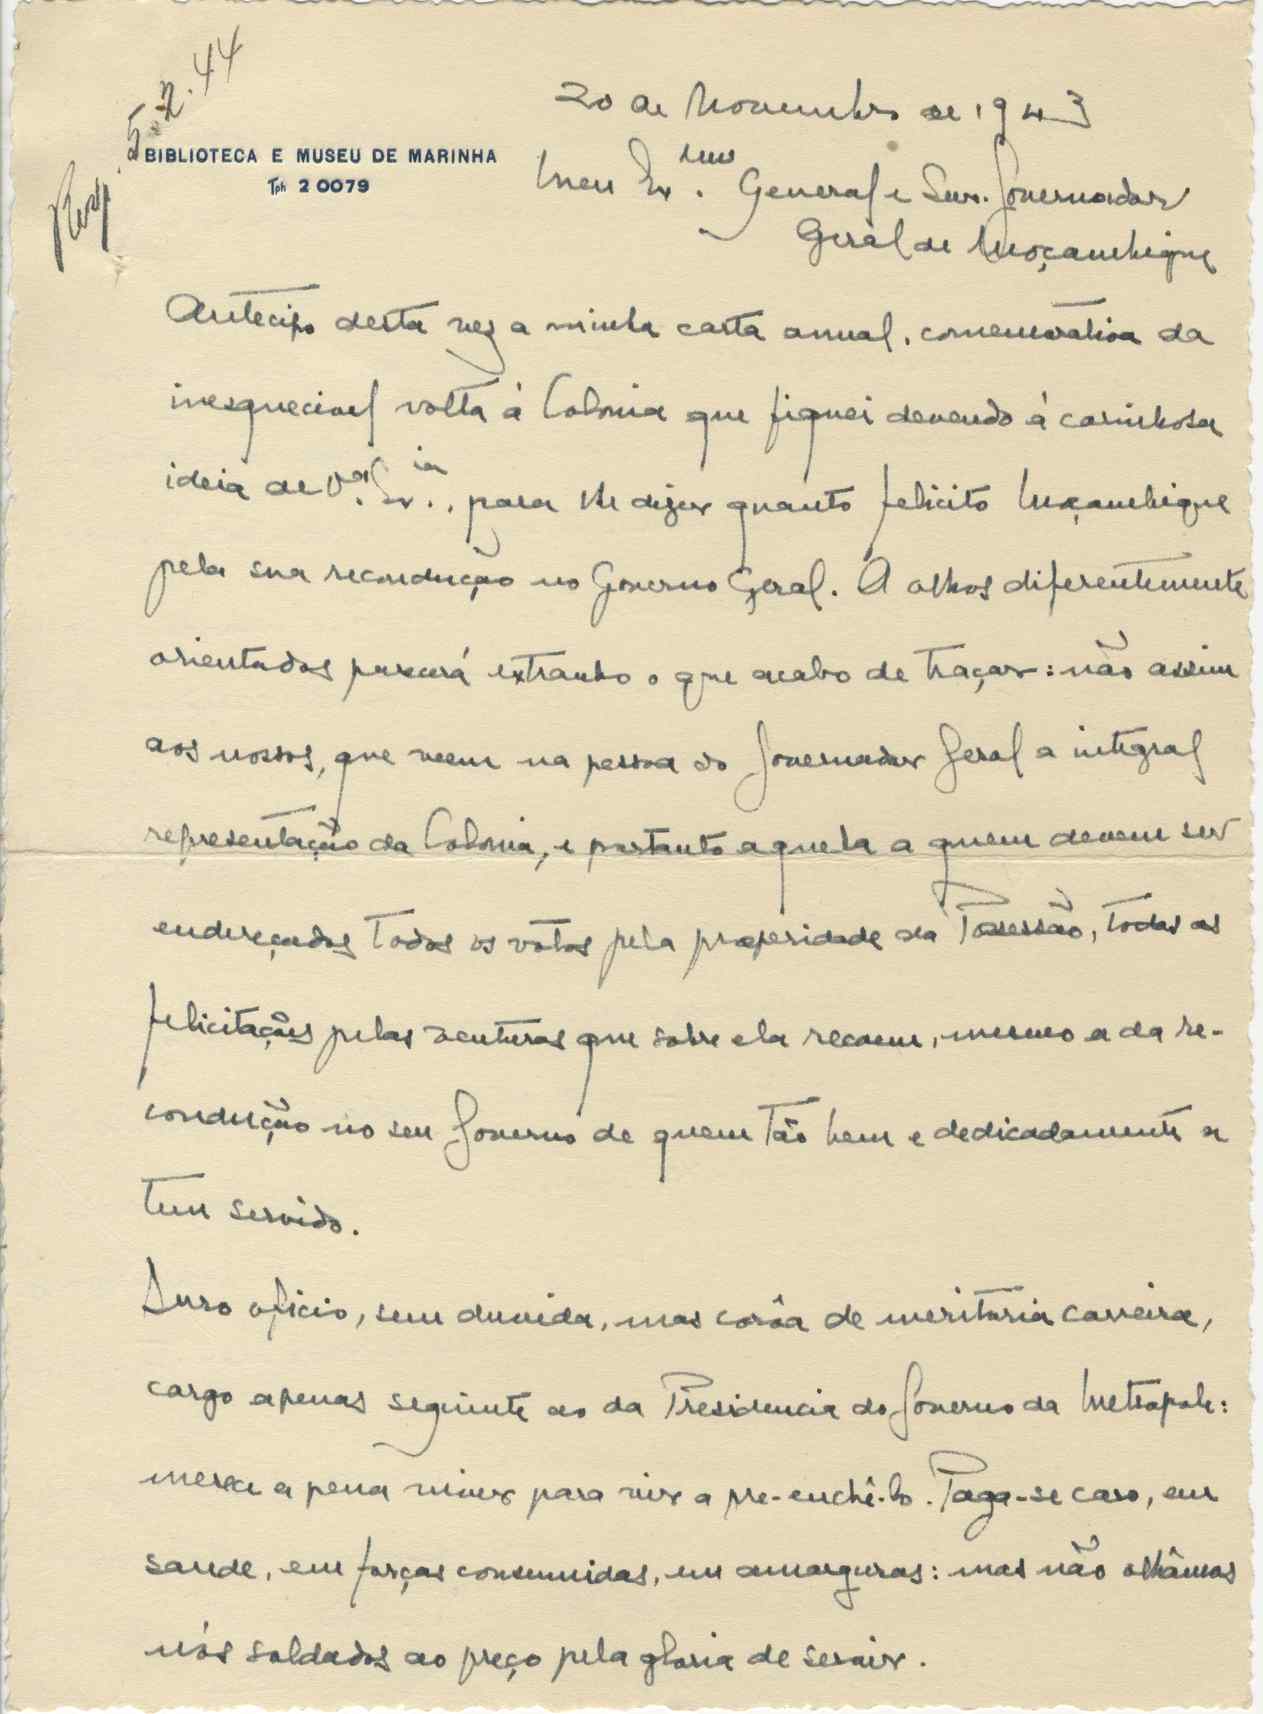 5.2.44
BIBLIOTECA E MUSEU DE MARINHA
Tph 2 0079
20 de Novembro de 1943
Meu Ex.mo General e Snr. Governador
Geral de Moçambique
Antecipo desta vez a minha carta anual, comemorativa da
inesquecivel volta à Colonia que fiquei devendo á carinhosa
ideia de V.a Ex.ia, para lhe dizer quanto felicito Moçambique
pela sua recondução no Governo Geral. A olhos diferentemente
orientados parecerá extranho o que acabo de traçar: não assim
aos nossos, que veem na pessoa do Governador Geral a integral
representação da Colonia, e portanto aquela a quem devem ser
endereçados todos os votos pela prosperidade da Possessão, todas as
felicitações pelas venturas que sobre ela recaem, mesmo a da re-
condução no seu Governo de quem tão bem e dedicadamente a
tem servido.
Duro oficio, sem duvida, mas corôa de meritoria carreira,
cargo apenas seguinte ao da Presidencia do Governo da Metropole:
merece a pena viver para vir a pre-enchê-lo. Paga-se caro, em
saude, em forças consumidas, em amarguras: mas não olhâmos
nós soldados ao preço pela gloria de servir.